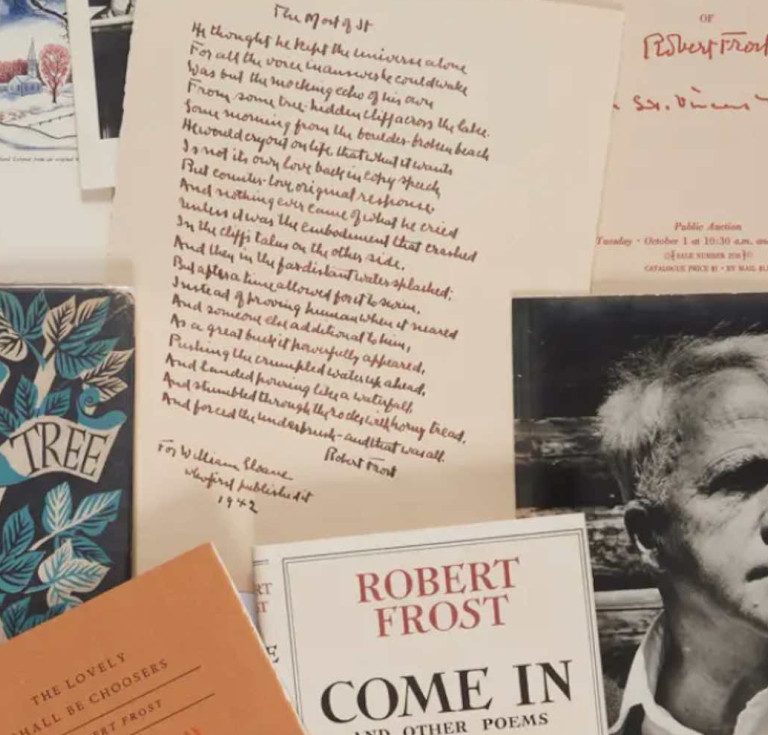 The Most of It
He thought he kept the universe alone
For all the voice in answer he could wake
Was but the mocking echo of his own
From some tree-hidden cliff across the lake.
Some morning from the boulder-broken beach
He would cry out on life, that what it wants
Is not its own love back in copy speech
But counter-love, original response.
And nothing ever came of what he cried
Unless it was the embodiment that crashed
In the cliff's talus on the other side,
And then in the far distant water splashed;
But after a time allowed for it to swim,
Instead of proving human when it neared
And someone else additional to him,
As a great buck it powerfully appeared,
Pushing the crumpled water up ahead,
And landed pouring like a waterfall,
And stumbled through the rocks with horny tread,
And forced the underbrush—and that was all.
Robert Frost
For William Sloane
who first published it
1942
OF
Robert Frost
Public Auction
Tuesday · October 1 at 10:30 a.m. and
CATALOGUE PRICE $1 · BY MAIL
TREE
THE LOVELY
SHALL BE CHOOSERS
ERT FROST
RT
ST
E
ROBERT
FROST
COME IN
AND OTHER POEMS